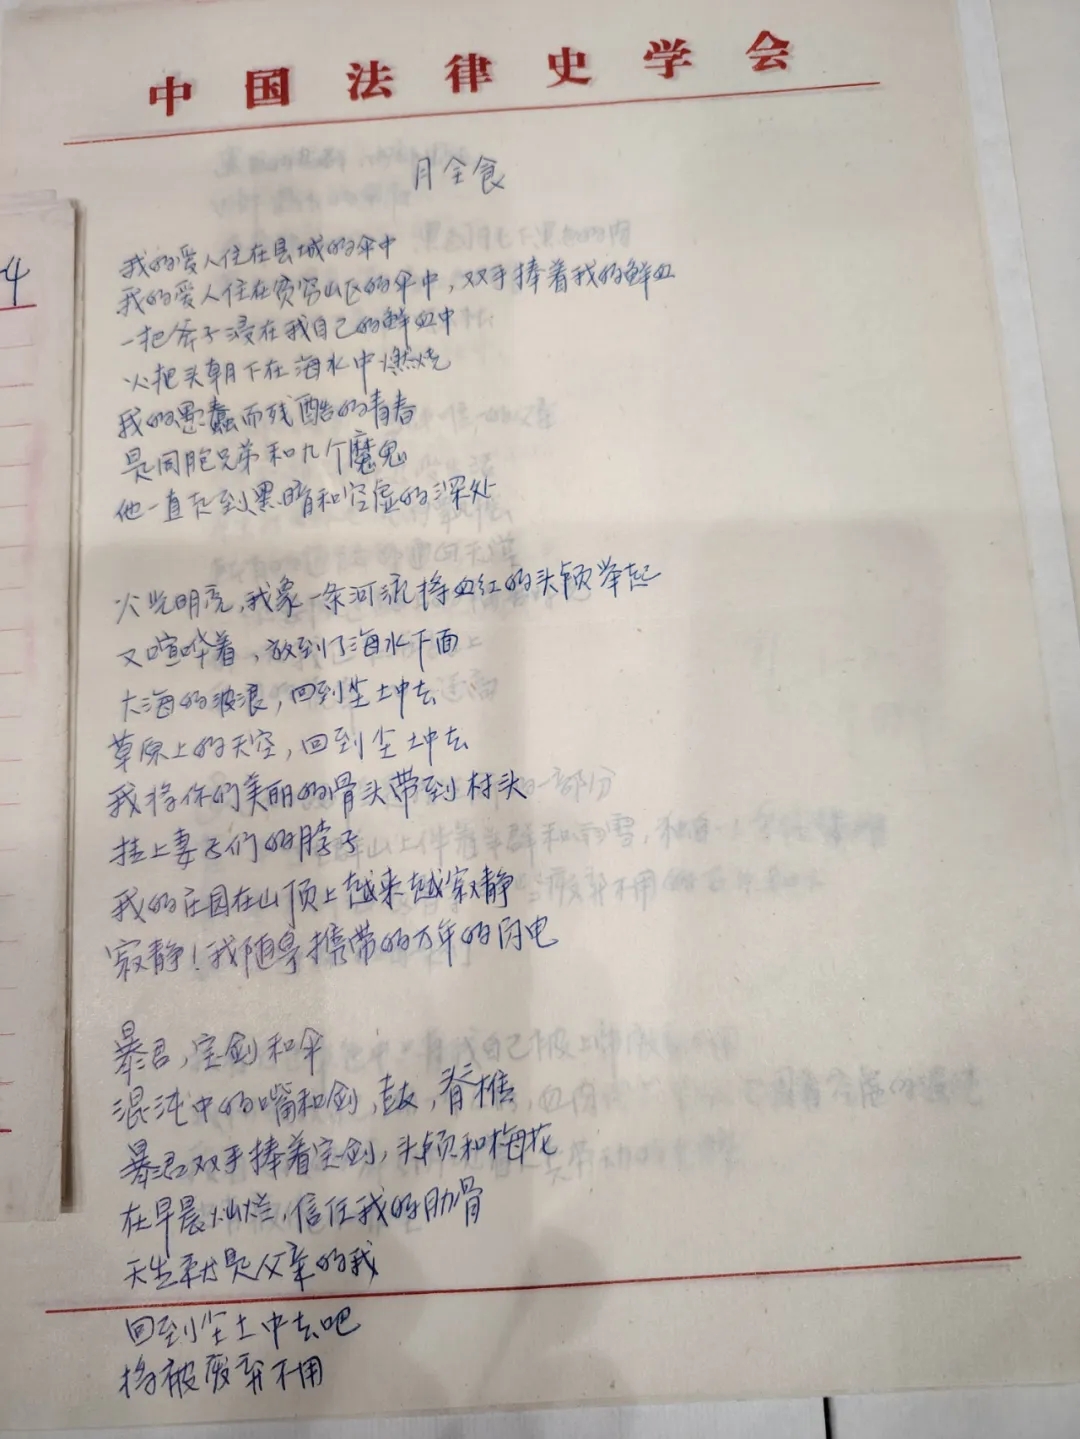 中国法律史学会
月全食
我的爱人住在县城的伞中
我的爱人住在贫穷山区的伞中，双手捧着我的鲜血
一把斧子浸在我自己的鲜血中
火把头朝下在海水中燃烧
我的愚蠢而残酷的青春
是同胞兄弟和九个魔鬼
他一直走到黑暗和空虚的深处
火光明亮，我象一条河流将血红的头颅举起
又喧哗着，放到了海水下面
大海的波浪，回到尘土中去
草原上的天空，回到尘土中去
我将你们美丽的骨头带到村头
挂上妻子们的脖子
我的庄园在山顶上越来越寂静
寂静！我随身携带的万年的闪电
暴君，宝剑和伞
混沌中的嘴和剑，鼓，脊椎
暴君双手捧着宝剑，头颅和梅花
在早晨灿烂，信任我的肋骨
天生就是父亲的我
回到尘土中去吧
将被废弃不用
4